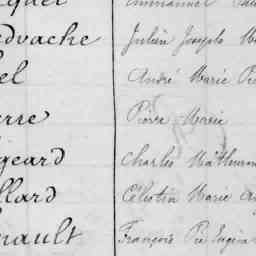 Emmanuel
dvache Julien Joseph
el André Marie
erre Pierre Marie
geard Charles Mathurin
llard Célestin Marie
nault François Pie Eugène